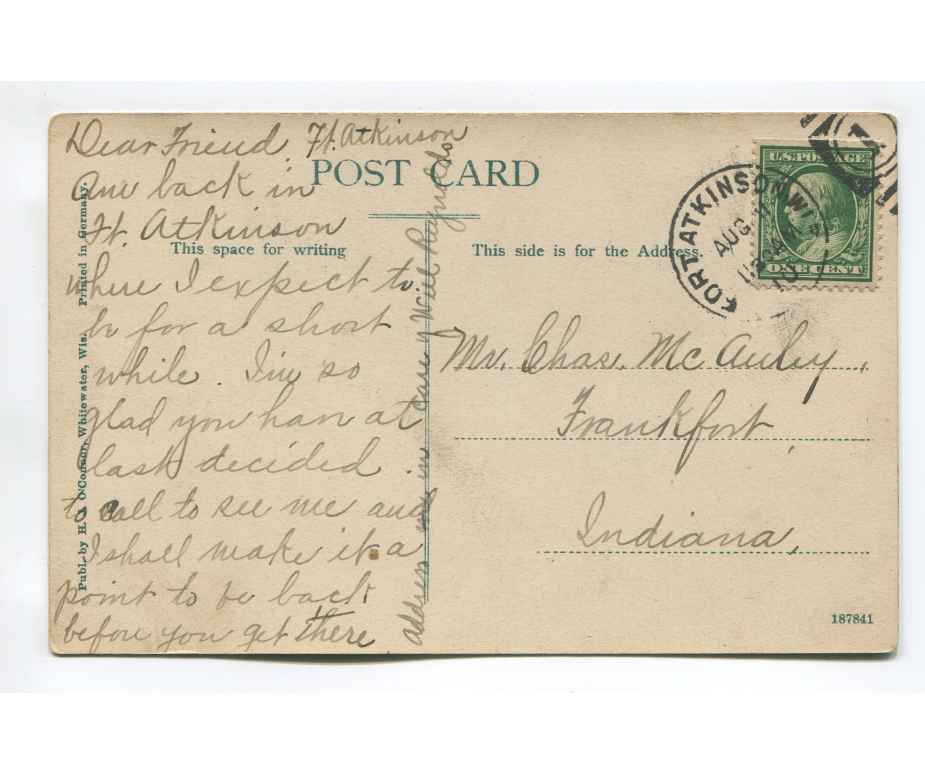 Dear Friend, Ft. Atkinson
POST CARD
Am back in
Ft. Atkinson
This space for writing
where I expect to
be for a short
while. I'm so
glad you have at
last decided
to call to see me and
I shall make it a
point to be back
before you get there
address me in care of Will Reynolds
Publ. by H. J. O'Connor, Whitewater, Wis. Printed in Germany.
This side is for the Address.
FORT ATKINSON WIS.
AUG
U.S. POSTAGE
ONE CENT
Mr. Chas. McAuley,
Frankfort,
Indiana,
187841